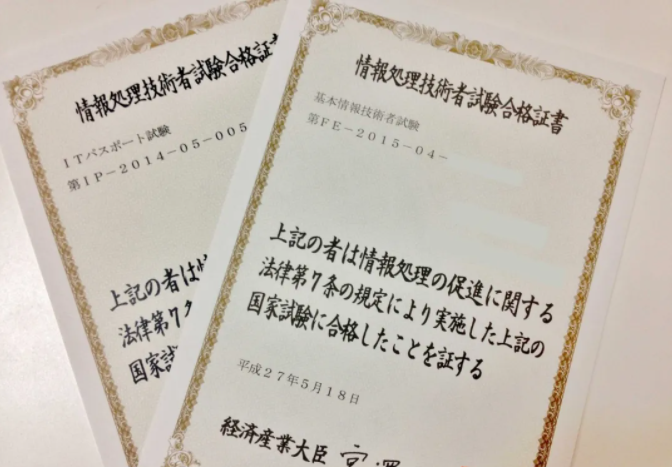 情報処理技術者試験合格証
ITパスポート試験
第IP-2014-05-005
上記の者は情
法律第7
国家試
情報処理技術者試験合格証書
基本情報技術者試験
第FE-2015-04-
上記の者は情報処理の促進に関する
法律第7条の規定により実施した上記の
国家試験に合格したことを証する
平成27年5月18日
経済産業大臣 宮